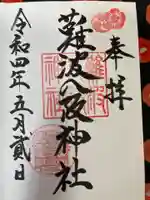 奉拝
難波八阪神社
令和四年五月貳日